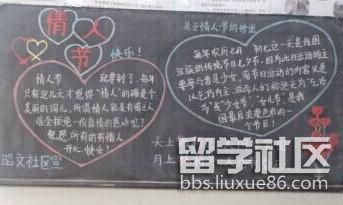 情人节
快乐！
情人节 就要到了，每年
只有这几天才觉得“情人”的确是个
美丽的词儿，所谓情人就是有情之人
祝愿所有的有情人
开心、快乐！
昭文社区宣
关于情人节的传说
每年农历七月 初七这一天是我国
汉族的传统节日七夕节。因为此日活动的主
要参与者是少女，而节日活动的内容又是
以乞巧为主，故而人们称这天为“乞巧
节”或“少女节”、“女儿节”，是我
国最具浪漫色彩的一
个节日！
天上
月上
留学社区
bbs.liuxue86.com